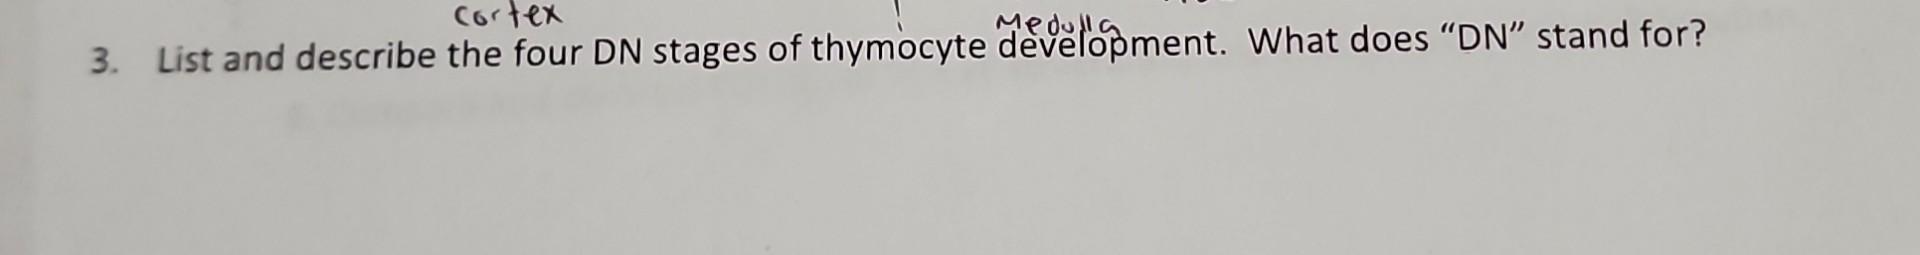 cortex
Medulla
3. List and describe the four DN stages of thymocyte development. What does “DN” stand for?